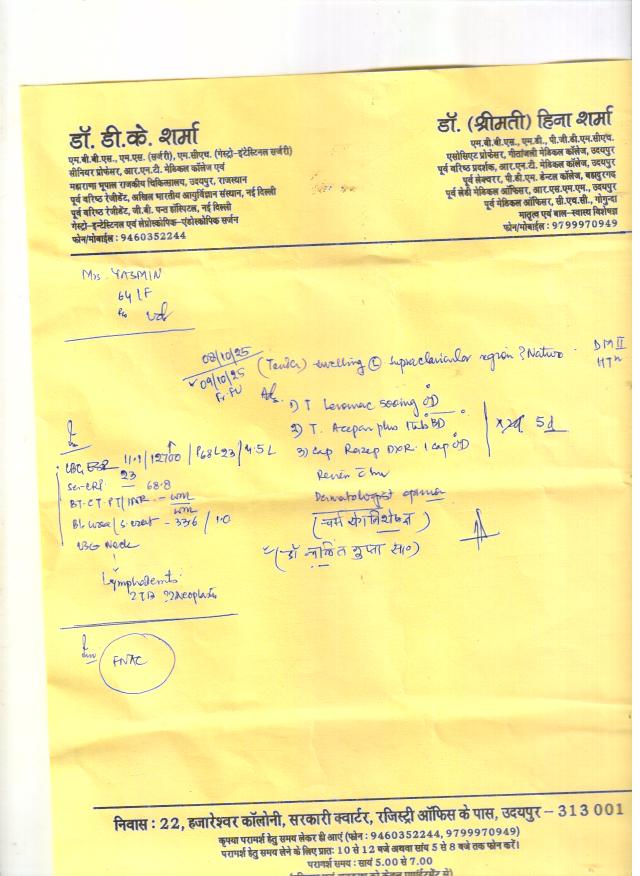 डॉ. डी.के. शर्मा
एम.बी.बी.एस., एम.एस. (सर्जरी), एम.सीएच. (गेस्ट्रो-इंटेस्टिनल सर्जरी)
सीनियर प्रोफेसर, आर.एन.टी. मेडिकल कॉलेज एवं
महाराणा भूपाल राजकीय चिकित्सालय, उदयपुर, राजस्थान
पूर्व वरिष्ठ रेजीडेंट, अखिल भारतीय आयुर्विज्ञान संस्थान, नई दिल्ली
पूर्व वरिष्ठ रेजीडेंट, जी.बी. पन्त हॉस्पिटल, नई दिल्ली
गेस्ट्रो-इन्टेस्टिनल एवं लेप्रोस्कोपिक-एंडोस्कोपिक सर्जन
फोन/मोबाईल : 9460352244
डॉ. (श्रीमती) हिना शर्मा
एम.बी.बी.एस., एम.डी., पी.जी.डी.एम.सीएच.
एसोसिएट प्रोफेसर, गीतांजली मेडिकल कॉलेज, उदयपुर
पूर्व वरिष्ठ प्रदर्शक, आर.एन.टी. मेडिकल कॉलेज, उदयपुर
पूर्व लेक्चरर, पी.डी.एम. डेन्टल कॉलेज, बहादुरगढ़
पूर्व लेडी मेडिकल ऑफिसर, आर.एस.एम.एम., उदयपुर
पूर्व मेडिकल ऑफिसर, सी.एच.सी., गोगुन्दा
मातृत्व एवं बाल-स्वास्थ्य विशेषज्ञ
फोन/मोबाईल : 9799970949
Mrs. YASMIN
64/F
08/10/25
09/10/25
(Tender) swelling L supraclavicular region ? Nature
DM II
HTn
Adv.
1) T Levomac 500mg OD
2) T. Acepan plus 1 tab BD
3) Cap Rezep DXR. 1 cap OD
x 5 d
Review
Dermatologist opinion
(चर्म रोग विशेषज्ञ)
(डॉ गुप्ता सा०)
CBC ESR 11.9/12700/P68L23/4.5L
23
Ser-CRP 68.8
BT-CT-PT/INR - WNL
WNL
Bl. urea/S. creat - 33.6/1.0
USG Neck
Inv
FNAC
निवास : 22, हजारेश्वर कॉलोनी, सरकारी क्वार्टर, रजिस्ट्री ऑफिस के पास, उदयपुर – 313 001
कृपया परामर्श हेतु समय लेकर ही आएं (फोन : 9460352244, 9799970949)
परामर्श हेतु समय लेने के लिए प्रातः 10 से 12 बजे अथवा सांय 5 से 8 बजे तक फोन करें।
परामर्श समय : सायं 5.00 से 7.00